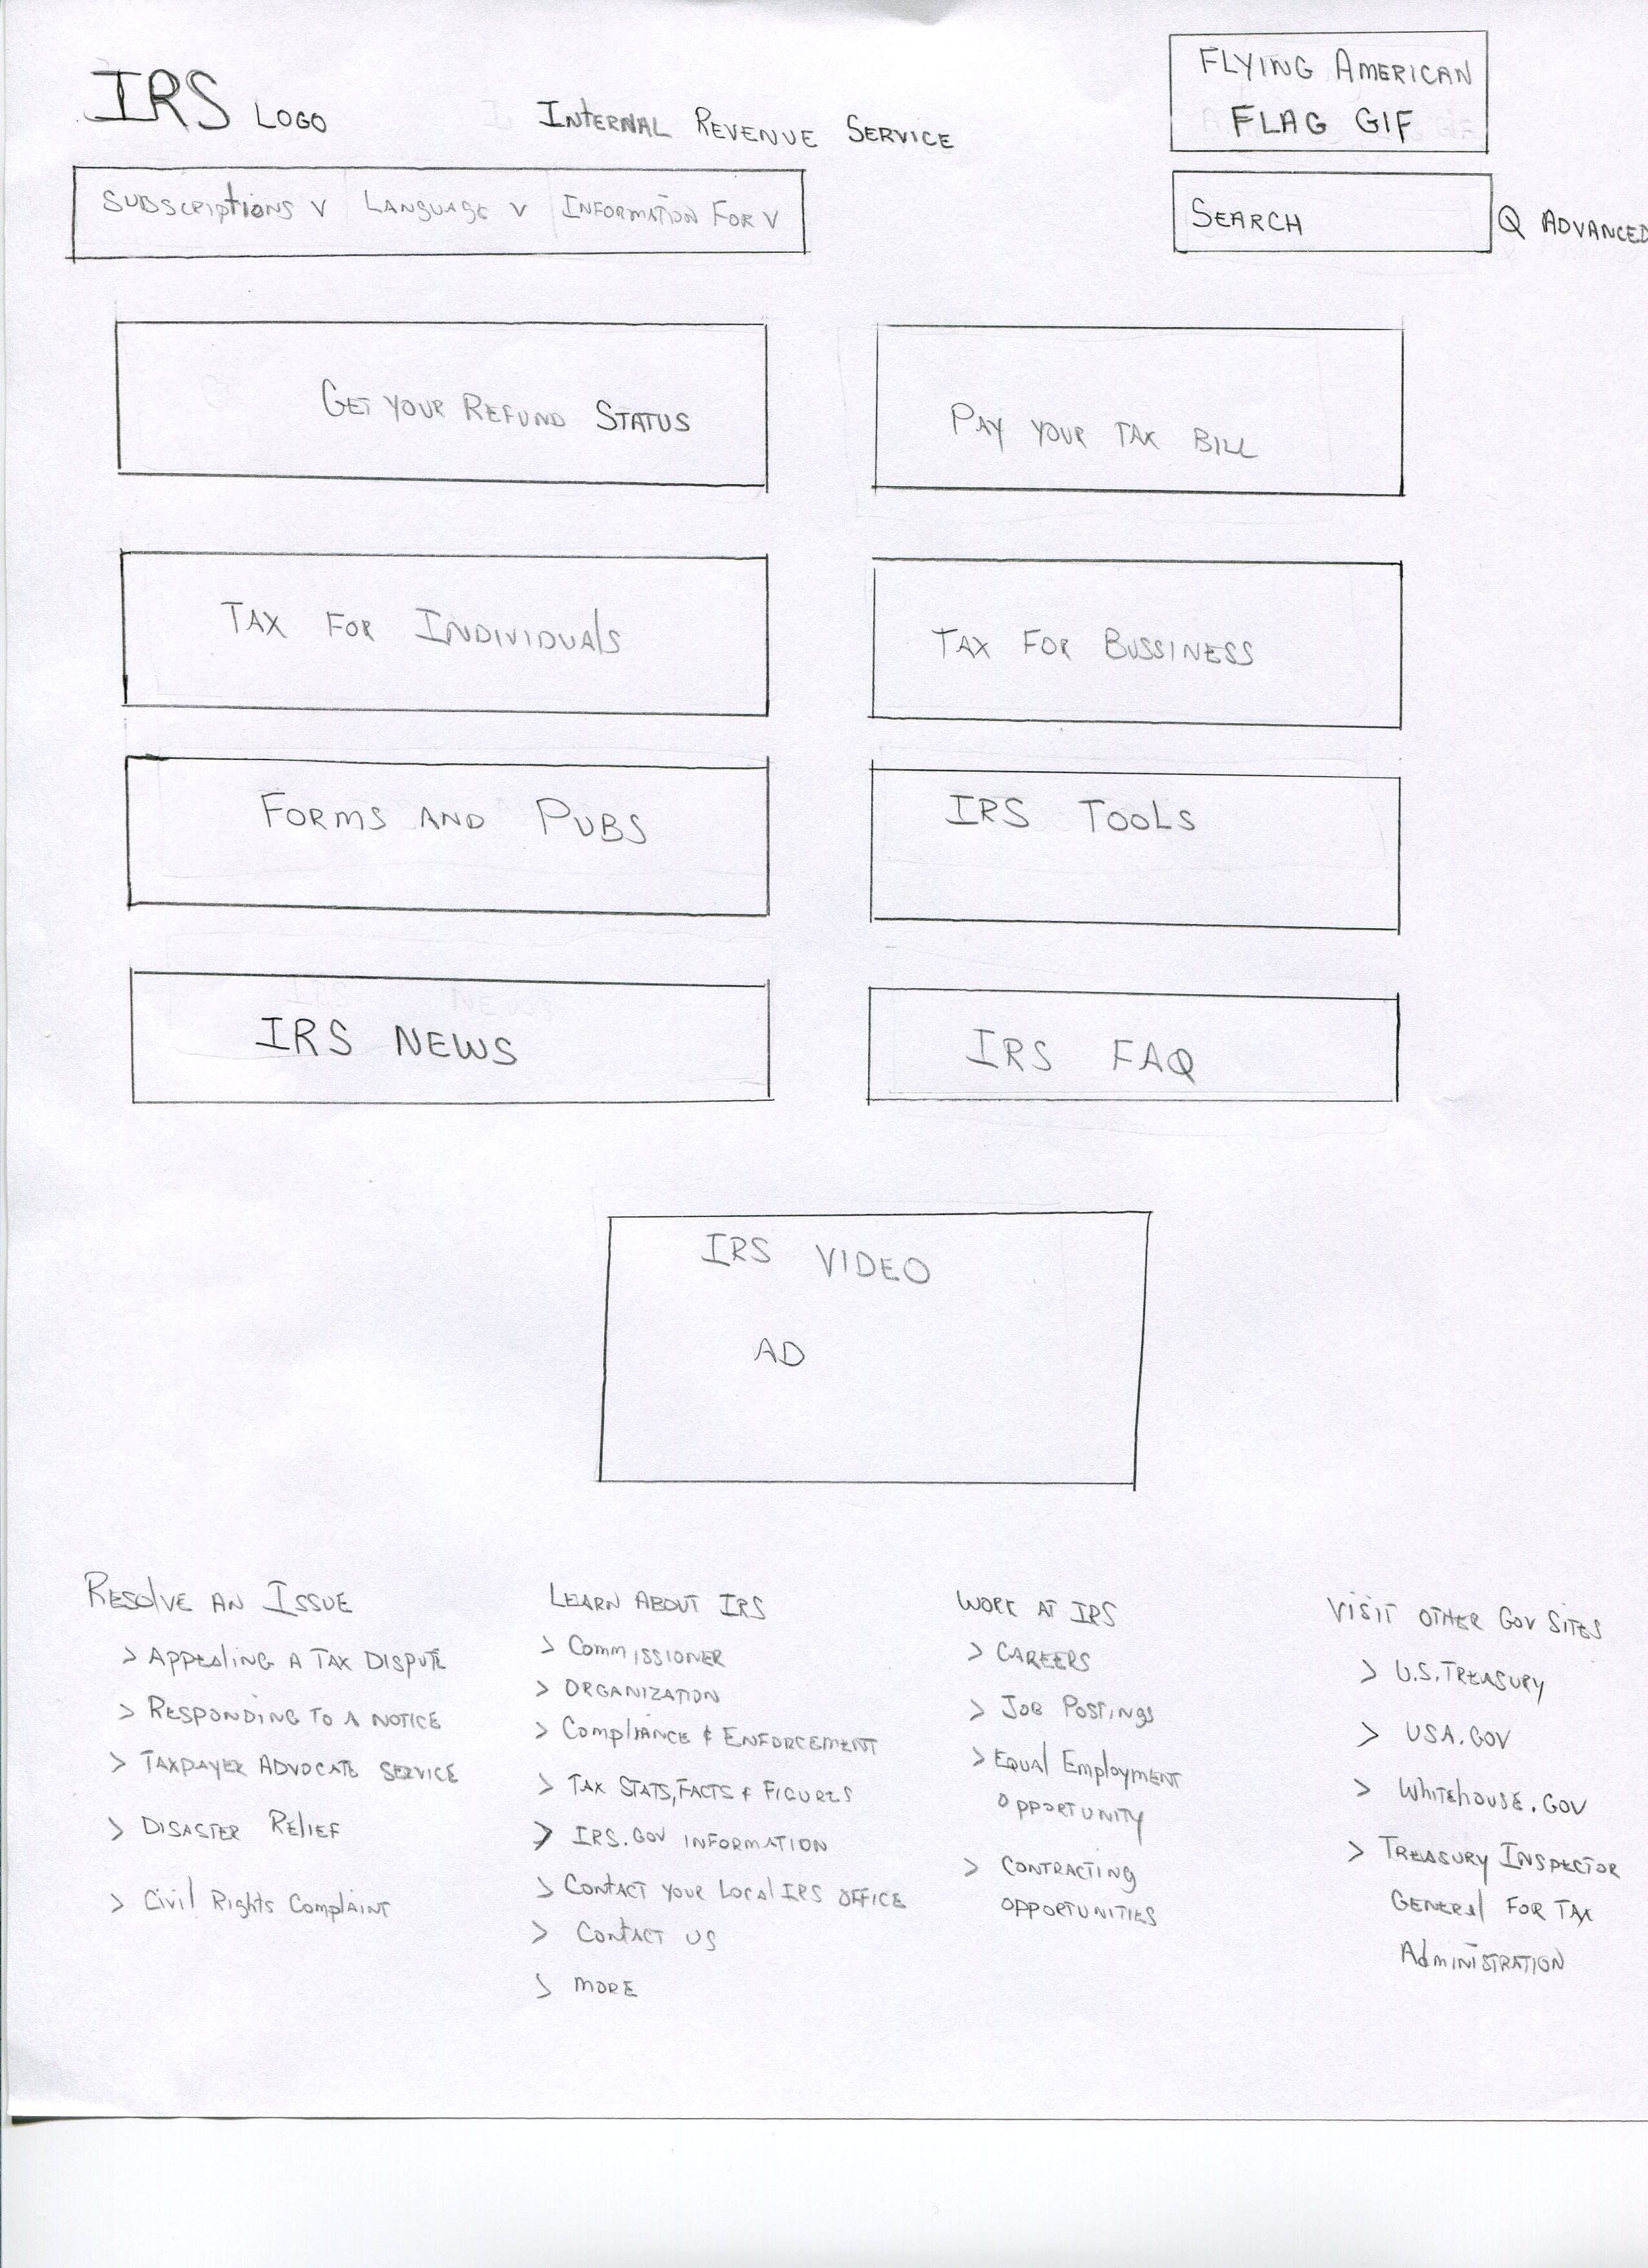 IRS LOGO
INTERNAL REVENUE SERVICE
FLYING AMERICAN
FLAG GIF
SUBSCRIPTIONS V LANGUAGE V INFORMATION FOR V
SEARCH
Q ADVANCED
GET YOUR REFUND STATUS
PAY YOUR TAX BILL
TAX FOR INDIVIDUALS
TAX FOR BUSSINESS
FORMS AND PUBS
IRS TOOLS
IRS NEWS
IRS FAQ
IRS VIDEO
AD
RESOLVE AN ISSUE
> APPEALING A TAX DISPUTE
> RESPONDING TO A NOTICE
> TAXPAYER ADVOCATE SERVICE
> DISASTER RELIEF
> CIVIL RIGHTS COMPLAINT
LEARN ABOUT IRS
> COMMISSIONER
> ORGANIZATION
> COMPLIANCE & ENFORCEMENT
> TAX STATS, FACTS & FIGURES
> IRS.GOV INFORMATION
> CONTACT YOUR LOCAL IRS OFFICE
> CONTACT US
> MORE
WORK AT IRS
> CAREERS
> JOB POSTINGS
> EQUAL EMPLOYMENT
OPPORTUNITY
> CONTRACTING
OPPORTUNITIES
VISIT OTHER GOV SITES
> U.S. TREASURY
> USA.GOV
> WHITEHOUSE.GOV
> TREASURY INSPECTOR
GENERAL FOR TAX
ADMINISTRATION